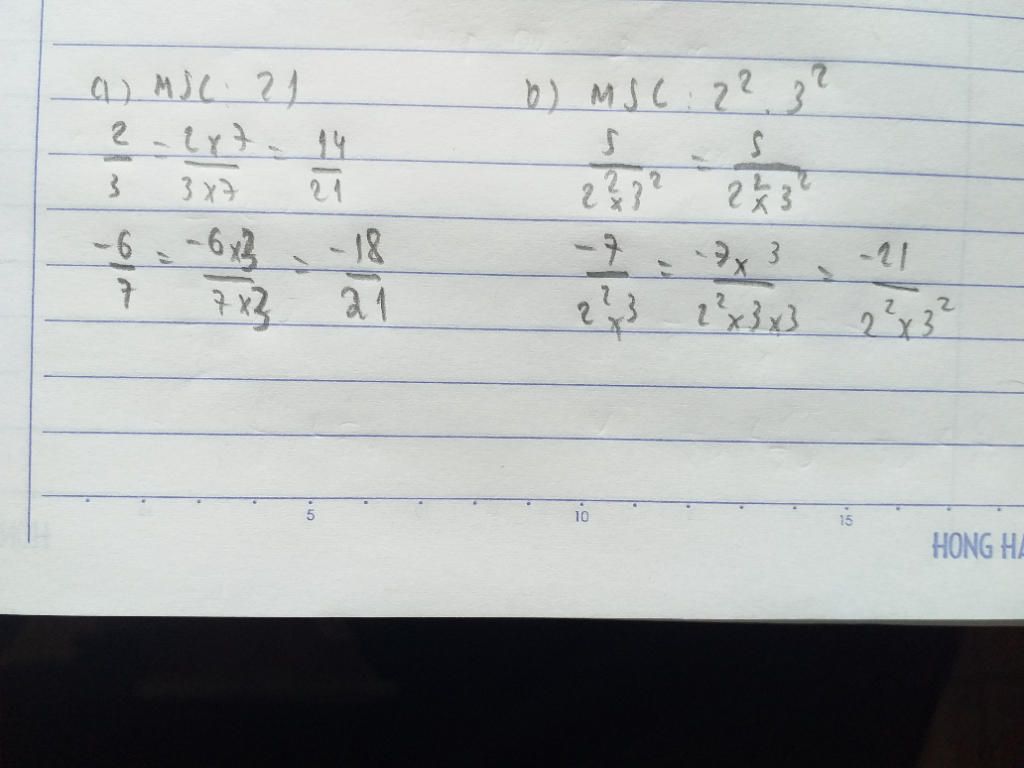 a) MSC: 21
2/3 = 2x7/3x7 = 14/21
-6/7 = -6x3/7x3 = -18/21
b) MSC: 2² . 3²
5/2²x3² = 5/2²x3²
-7/2²x3 = -7x3/2²x3x3 = -21/2²x3²
5 10 15
HONG HA